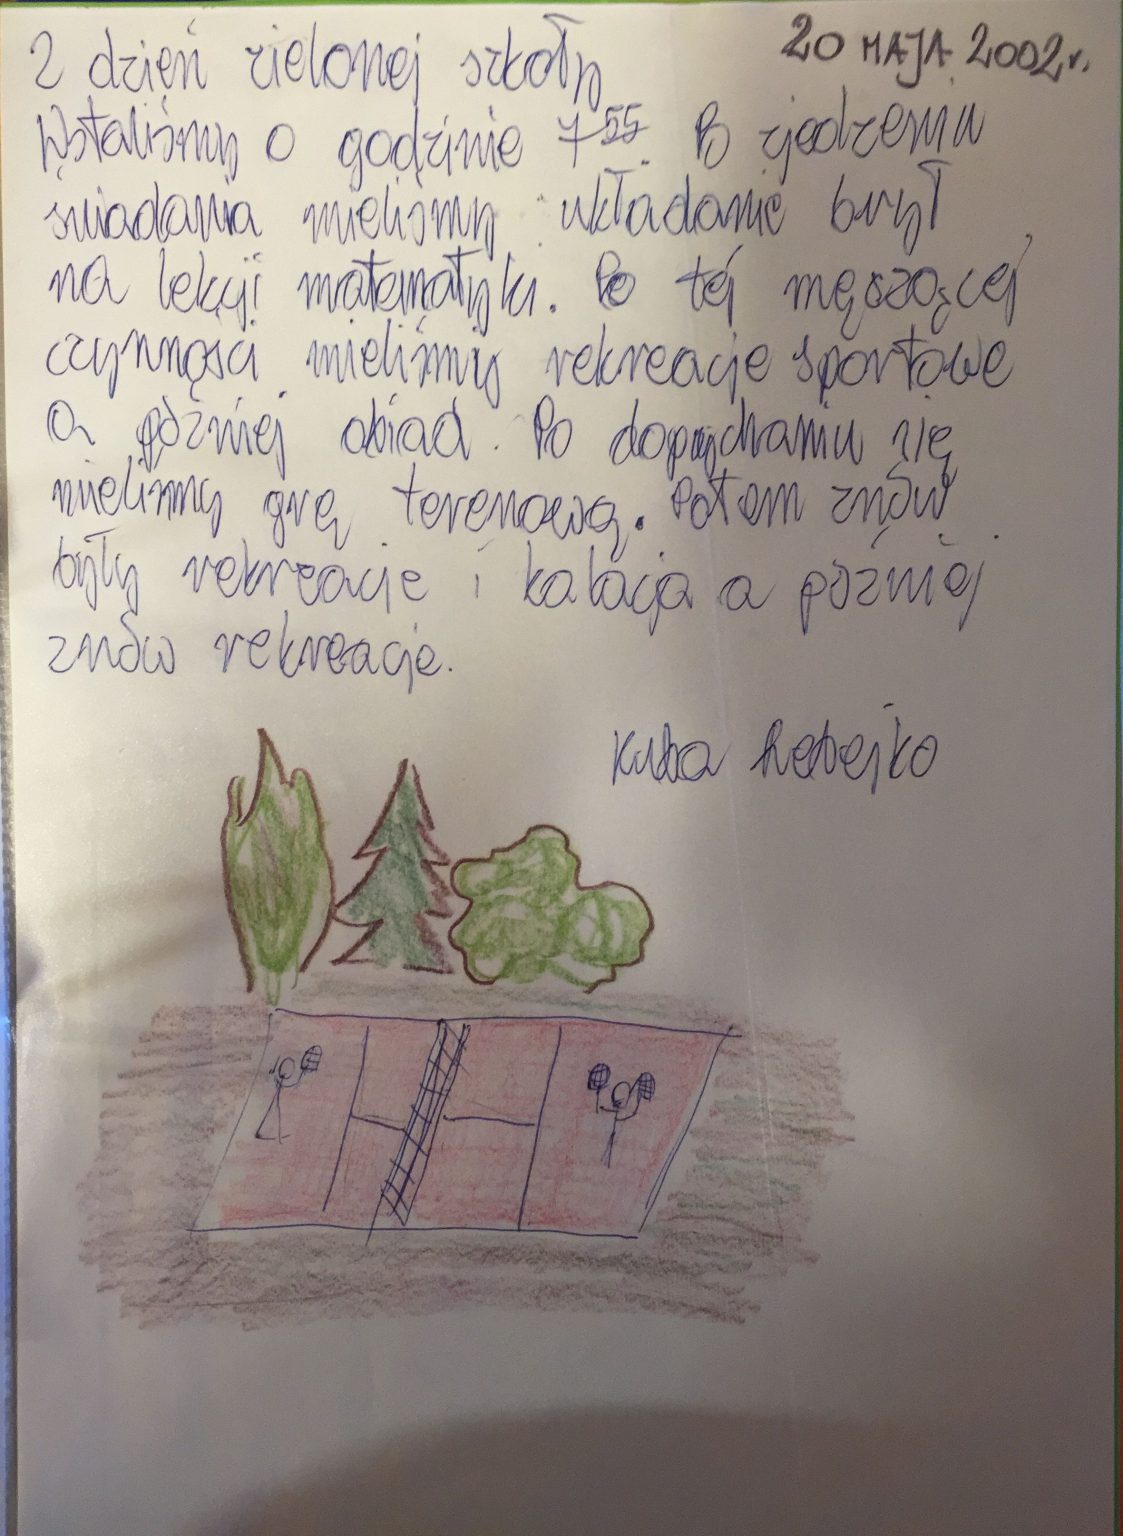 2 dzień zielonej szkoły
20 MAJA 2002r.
Wstaliśmy o godzinie 7 55. Po zjedzeniu
śniadania mieliśmy układanie brył
na lekcji matematyki. Po tej męszącej
czynności mieliśmy rekreacje sportowe
a później obiad. Po dopychaniu się
mieliśmy grę terenową. Potem znów
były rekreacje i kalacja a później
znów rekreacje.
Kuba